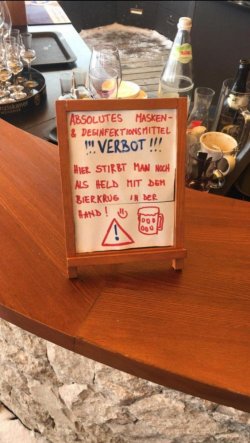 ABSOLUTES MASKEN-
& DEGINFEKTIONSMITTEL
!!! VERBOT !!!
HIER STIRBT MAN NOCH
ALS HELD MIT DEM
BIERKRUG IN DER
HAND!